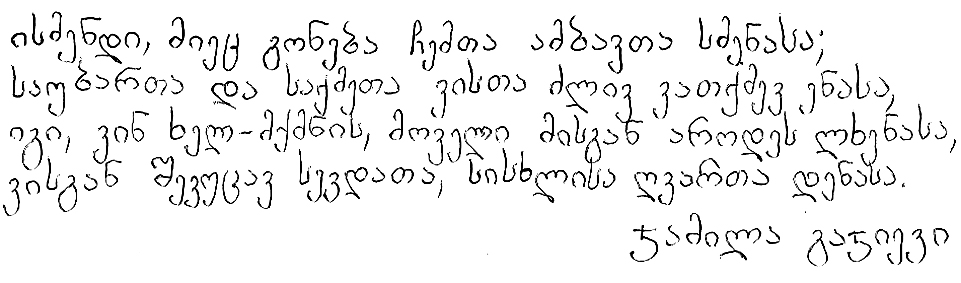 ისმენდი, მიეც გონება ჩემთა ამბავთა სმენასა;
საუბართა და საქმეთა ვისთა ძლივ ვათქმევ ენასა,
იგი, ვინ ხელ-მქმნის, მოველი მისგან აროდეს ლხენასა,
ვისგან შევუცავ სევდათა, სისხლისა ღვართა დენასა.
ჯამილა გაჯიევი